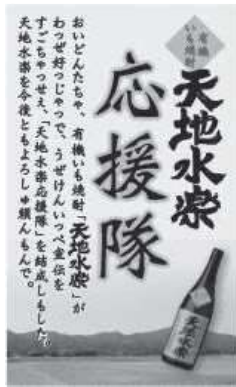 有機
いも焼酎
天地水楽
応援隊
おいどんたちゃ、有機いも焼酎「天地水楽」が
わっぜ好っじゃっで、うぜけんいっぺ宣伝を
すごちゃっせえ、「天地水楽応援隊」を結成しもした。
天地水楽を今後ともよろしゅ頼んもんで。
天地水楽